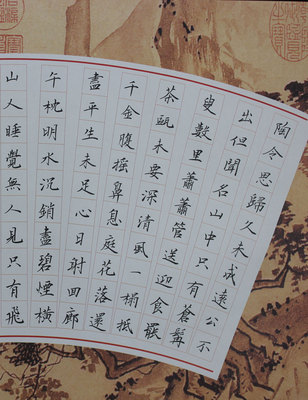 陶令思歸久未成遠公不
出但聞名山中只有蒼髯
叟數里蕭蕭管送迎食罷
茶甌未要深清風一榻抵
千金腹搖鼻息庭花落還
盡平生未足心日射回廊
午枕明水沉銷盡碧煙橫
山人睡覺無人見只有飛